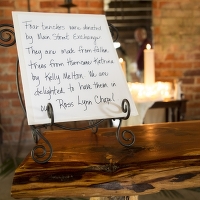 Four benches were donated
by Main Street Exchange.
They are made from fallen
trees from Hurricane Katrina
by Kelly Melton. We are
delighted to have them in
our Ross Lynn Chapel!